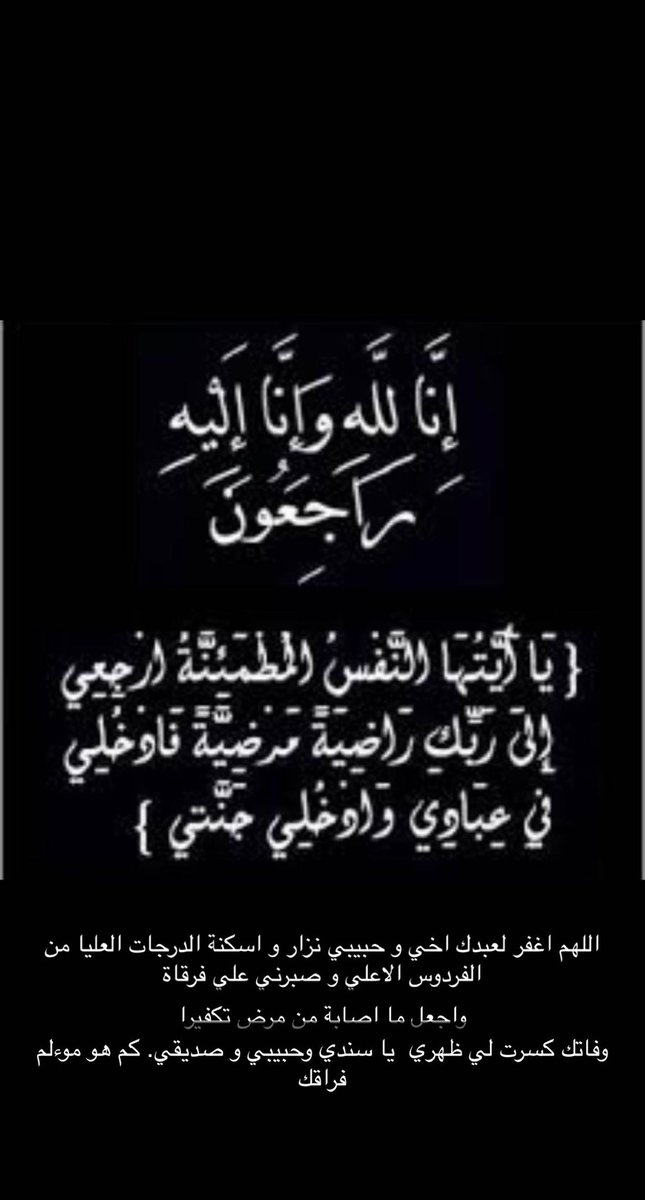 إِنَّا لِلَّهِ وَإِنَّا إِلَيْهِ
رَاجِعُونَ
{ يَا أَيَّتُهَا النَّفْسُ الْمُطْمَئِنَّةُ ارْجِعِي
إِلَى رَبِّكِ رَاضِيَةً مَرْضِيَّةً فَادْخُلِي
فِي عِبَادِي وَادْخُلِي جَنَّتِي }
اللهم اغفر لعبدك اخي و حبيبي نزار و اسكنة الدرجات العليا من
الفردوس الاعلي و صبرني علي فرقاة
واجعل ما اصابة من مرض تكفيرا
وفاتك كسرت لي ظهري يا سندي وحبيبي و صديقي. كم هو موءلم
فراقك